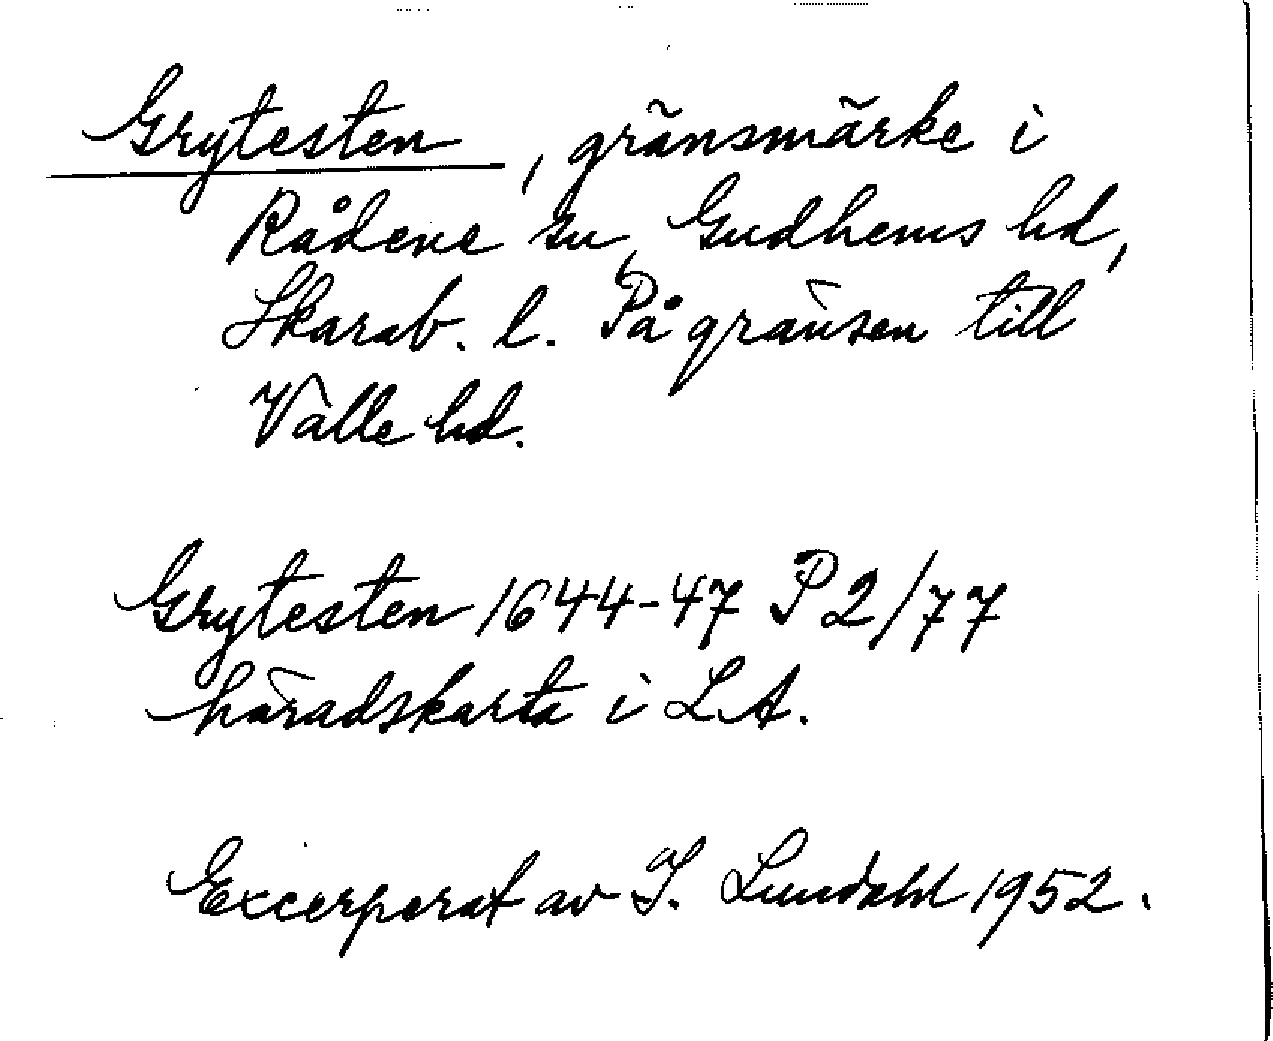 Grytesten, gränsmärke i
Rådene sn, Gudhems hd,
Skarab. l. På gränsen till
Valle hd.
Grytesten 1644-47 P2/77
häradskarta i LA.
Excerperat av I. Lundahl 1952.